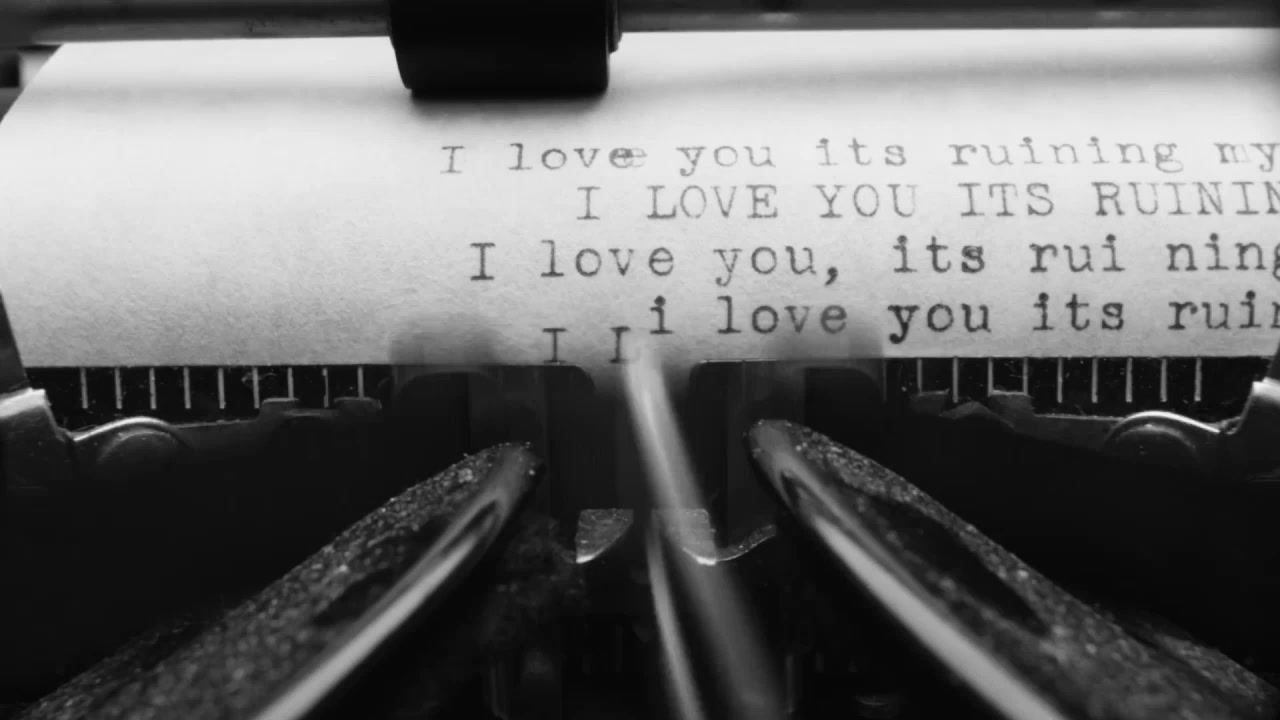 I love you its ruining my
I LOVE YOU ITS RUININ
I love you, its rui ning
i love you its ruin
I I